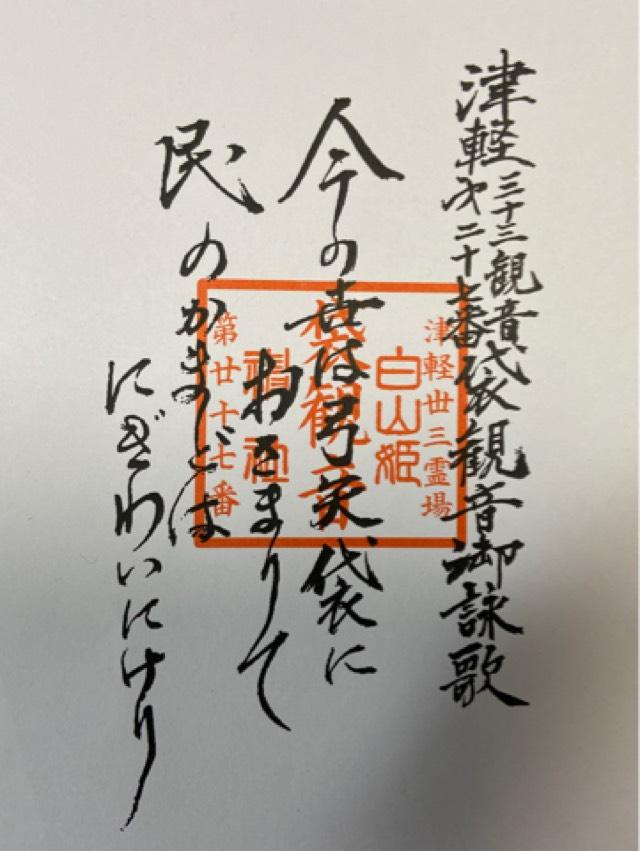 津軽三十三観音
第二十七番袋観音御詠歌
今の世は弓矢袋に
おさまりて
民のかまどは
にぎわいにけり
津軽卅三霊場
白山姫
袋観音
神社
第廿十七番